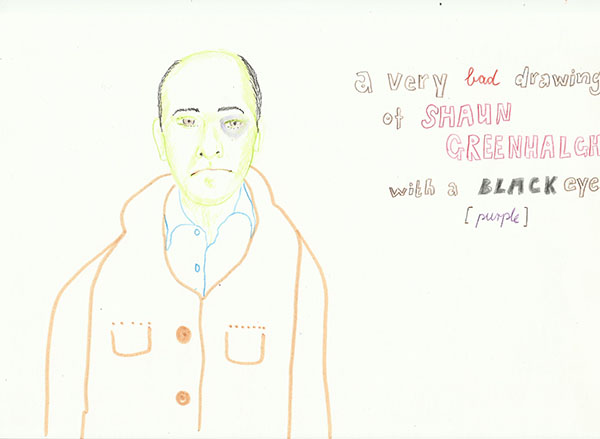 a very bad drawing
of SHAUN
GREENHALGH
with a BLACK eye
[purple]